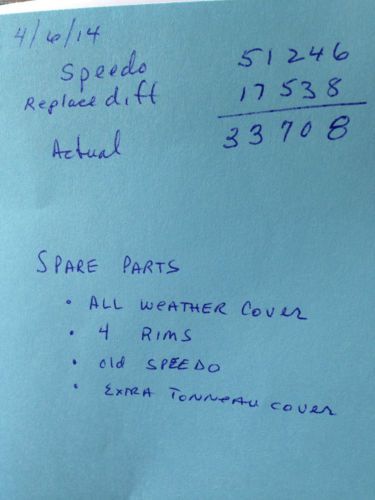 4/6/14
Speedo 51246
Replace diff 17538
Actual 33708
SPARE PARTS
• ALL WEATHER COVER
• 4 RIMS
• old SPEEDO
• EXTRA TONNEAU COVER